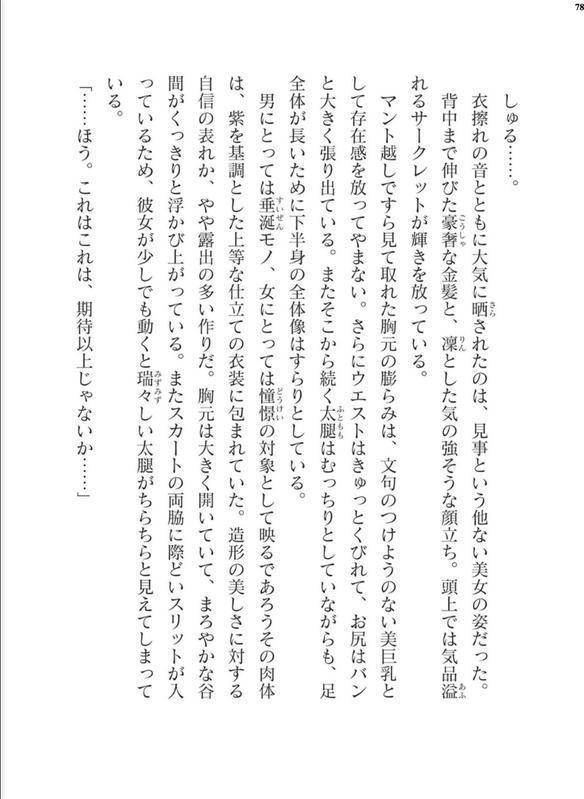 78
しゅる……。
衣擦れの音とともに大気に晒されたのは、見事という他ない美女の姿だった。
背中まで伸びた豪奢な金髪と、凜とした気の強そうな顔立ち。頭上では気品溢
れるサークレットが輝きを放っている。
マント越しですら見て取れた胸元の膨らみは、文句のつけようのない美巨乳と
して存在感を放ってやまない。さらにウエストはきゅっとくびれて、お尻はバン
と大きく張り出ている。またそこから続く太腿はむっちりとしていながらも、足
全体が長いために下半身の全体像はすらりとしている。
男にとっては垂涎モノ、女にとっては憧憬の対象として映るであろうその肉体
は、紫を基調とした上等な仕立ての衣装に包まれていた。造形の美しさに対する
自信の表れか、やや露出の多い作りだ。胸元は大きく開いていて、まろやかな谷
間がくっきりと浮かび上がっている。またスカートの両脇に際どいスリットが入
っているため、彼女が少しでも動くと瑞々しい太腿がちらちらと見えてしまって
いる。
「……ほう。これはこれは、期待以上じゃないか……」